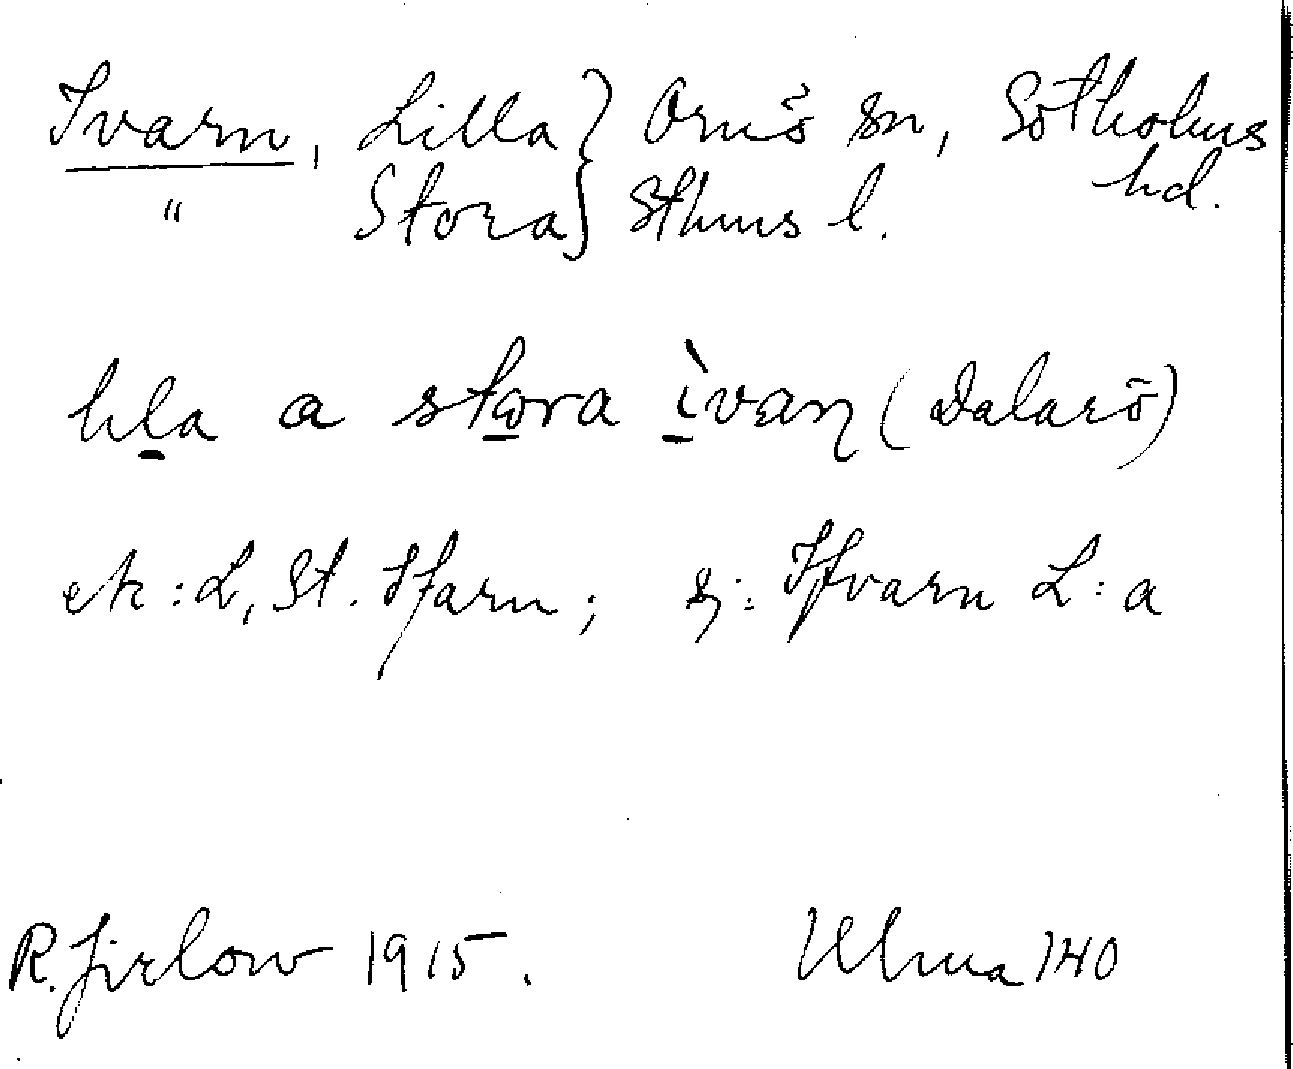 Ivarn, Lilla } Ornö sn, Sotholms hd.
" Stora } Sthms l.
lila a stora ìvaɳ (Dalarö)
ek: L, St. Ifarn; sj: Ifvarn L:a
R. Jirlow 1915. Ulma 140